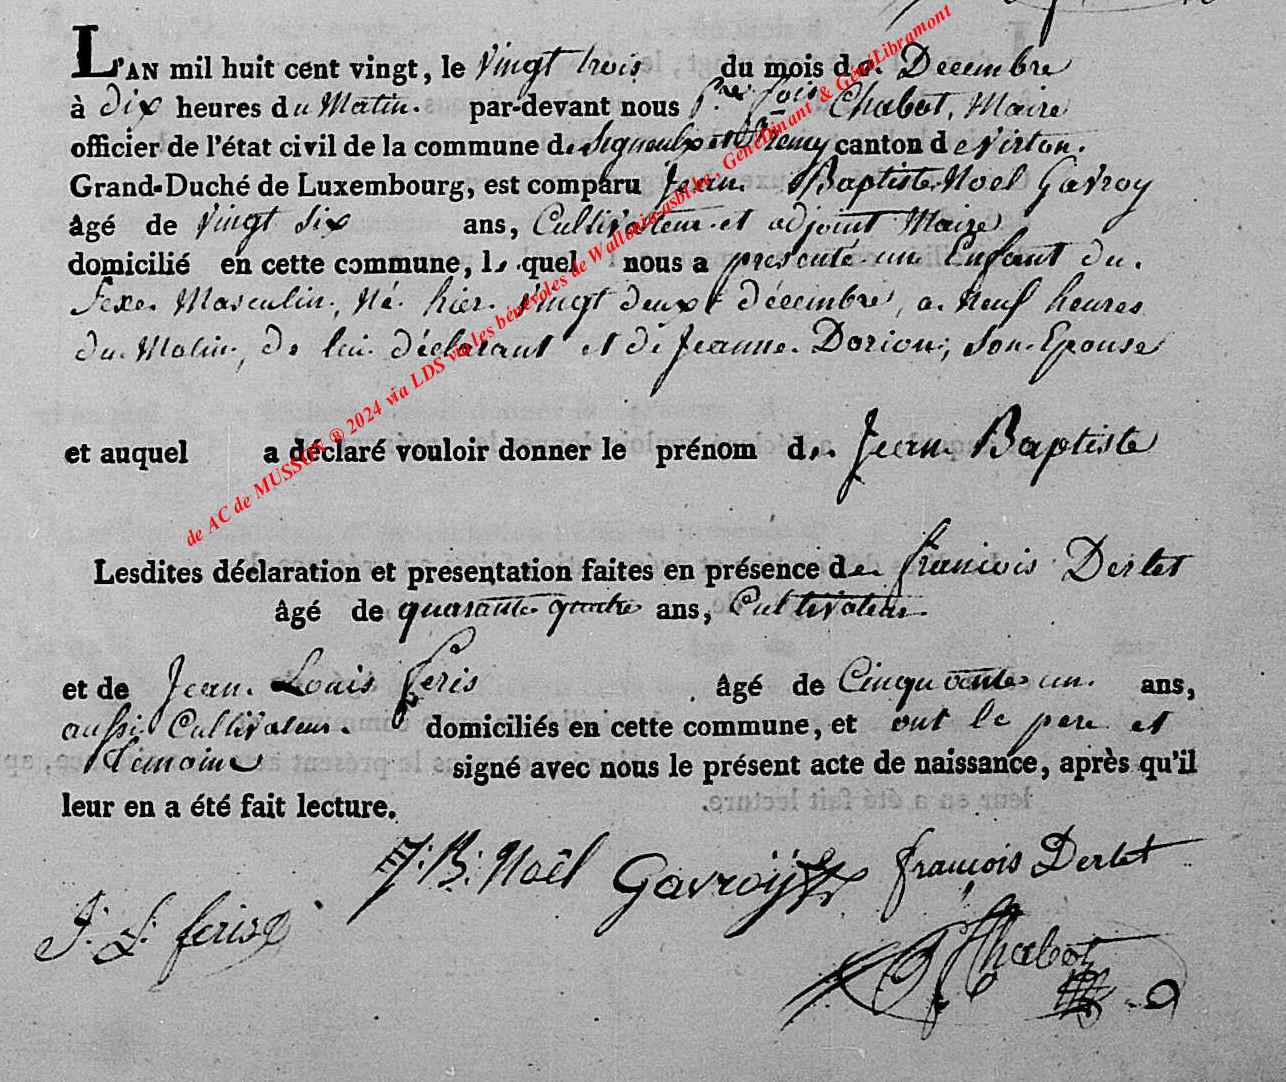 L'AN mil huit cent vingt, le vingt trois du mois de Decembre
à dix heures du Matin. par-devant nous P.re fois Chabot, Maire
officier de l'état civil de la commune de Signeulx et St remy canton de Virton.
Grand-Duché de Luxembourg, est comparu Jean Baptiste Noel Gavroy
âgé de vingt six ans, Cultivateur et adjoint Maire
domicilié en cette commune, le quel nous a presenté un Enfant du
Sexe Masculin, Né hier vingt deux décembre, a Neuf heures
du Matin, de lui déclarant et de Jeanne Dorion, son Epouse
et auquel a déclaré vouloir donner le prénom de Jean Baptiste
Lesdites déclaration et presentation faites en présence de francois Derlet
âgé de quarante quatre ans, Cultivateur
et de Jean Louis feris âgé de Cinquante un ans,
aussi Cultivateur. domiciliés en cette commune, et ont le pere et
témoins signé avec nous le présent acte de naissance, après qu'il
leur en a été fait lecture.
J: B: Noël Gavroy françois Derlet
J: L: feris
Chabot
de AC de MUSSON ® 2024 via LDS via les bénévoles de Wallonia-asbl.be, GénéDinant & GénéLibramont